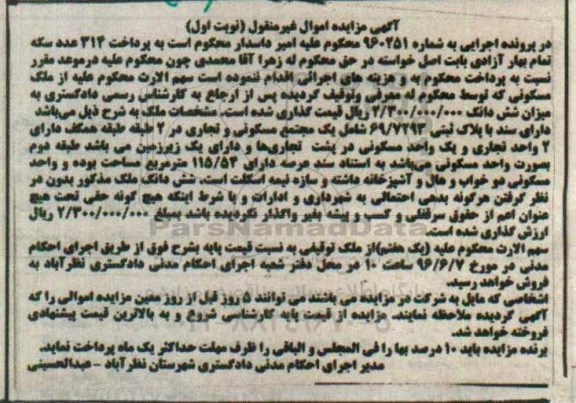 آگهی مزایده اموال غیرمنقول (نوبت اول)
در پرونده اجرایی به شماره ۹۶۰۲۵۱ محکوم علیه امیر داسدار محکوم است به پرداخت ۳۱۴ عدد سکه
تمام بهار آزادی بابت اصل خواسته در حق محکوم له زهرا آقا محمدی چون محکوم علیه درموعد مقرر
نسبت به پرداخت محکوم به و هزینه های اجرائی اقدام ننموده است سهم الارث محکوم علیه از ملک
مسکونی که توسط محکوم له معرفی وتوقیف گردیده پس از ارجاع به کارشناس رسمی دادگستری به
میزان شش دانگ ۲/۳۰۰/۰۰۰/۰۰۰ ریال قیمت گذاری شده است. مشخصات ملک به شرح ذیل می‌باشد
دارای سند با پلاک ثبتی ۶۹/۷۲۹۳ شامل یک مجتمع مسکونی و تجاری در ۲ طبقه طبقه همکف دارای
۲ واحد تجاری و یک واحد مسکونی در پشت تجاری‌ها و دارای یک زیرزمین می باشد طبقه دوم
بصورت واحد مسکونی می‌باشد به استناد سند عرصه دارای ۱۱۵/۵۴ مترمربع مساحت بوده و واحد
مسکونی دو خواب و هال و آشپزخانه داشته و سازه نیمه اسکلت است. شش دانگ ملک مذکور بدون در
نظر گرفتن هرگونه بدهی احتمالی به شهرداری و ادارات و با شرط اینکه هیچ گونه حقی تحت هیچ
عنوان اعم از حقوق سرقفلی و کسب و پیشه بغیر واگذار نگردیده باشد بمبلغ ۲/۳۰۰/۰۰۰/۰۰۰ ریال
ارزش گذاری شده است.
سهم الارث محکوم علیه (یک هفتم)از ملک توقیفی به نسبت قیمت پایه بشرح فوق از طریق اجرای احکام
مدنی در مورخ ۹۶/۶/۷ ساعت ۱۰ در محل دفتر شعبه اجرای احکام مدنی دادگستری نظرآباد به
فروش خواهد رسید.
اشخاصی که مایل به شرکت در مزایده می باشند می توانند ۵ روز قبل از روز معین مزایده اموالی را که
آگهی گردیده ملاحظه نمایند. مزایده از قیمت پایه کارشناسی شروع و به بالاترین قیمت پیشنهادی
فروخته خواهد شد.
برنده مزایده باید ۱۰ درصد بها را فی المجلس و الباقی را ظرف مهلت حداکثر یک ماه پرداخت نماید.
مدیر اجرای احکام مدنی دادگستری شهرستان نظرآباد - عبدالحسینی
ParsNamadData